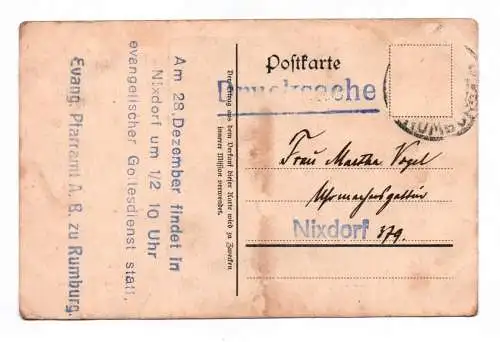 Am 28.Dezember findet in
Nixdorf um 1/2 10 Uhr
evangelischer Gottesdienst statt.
Evang. Pfarramt A. B. zu Rumburg.
Der Ertrag aus dem Verkauf dieser Karte wird zu Zwecken
innerer Mission verwendet.
Postkarte
Drucksache
Frau Martha Vogel
Uhrmachersgattin
Nixdorf 379.